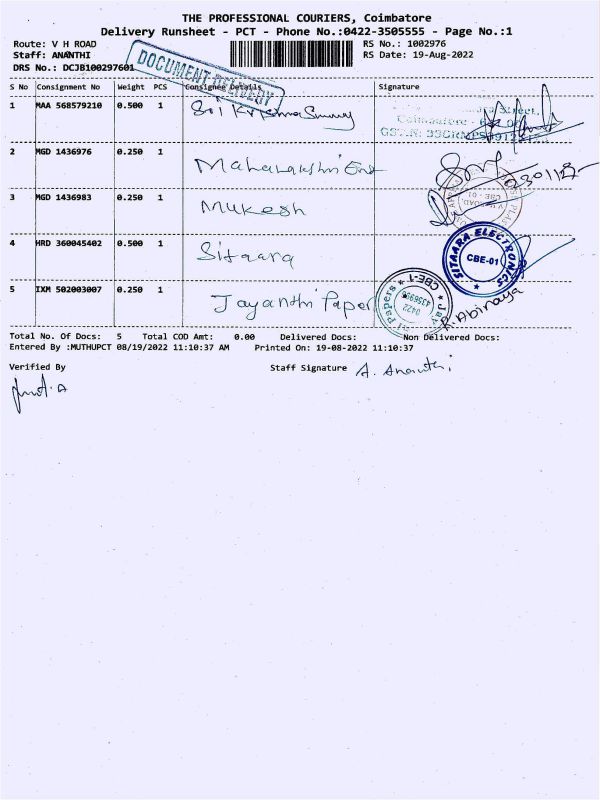 THE PROFESSIONAL COURIERS, Coimbatore
Delivery Runsheet - PCT - Phone No.:0422-3505555 - Page No.:1
Route: V H ROAD RS No.: 1002976
Staff: ANANTHI RS Date: 19-Aug-2022
DRS No.: DCJB100297601
DOCUMENT DELIVERY
S No Consignment No Weight PCS Consignee Details Signature
1 MAA 568579210 0.500 1 Sri Krishna Swamy
Street,
Coimbatore
2 MGD 1436976 0.250 1 Mahalakshmi Ent
3 MGD 1436983 0.250 1 Mukesh
CBE - 01
4 HRD 360045402 0.500 1 Sitaara
SITAARA ELECTRONICS
CBE-01
5 IXM 502003007 0.250 1 Jayanthi Paper
CBE-1
0422
4356956
R. Abinaya
Total No. Of Docs: 5 Total COD Amt: 0.00 Delivered Docs: Non Delivered Docs:
Entered By :MUTHUPCT 08/19/2022 11:10:37 AM Printed On: 19-08-2022 11:10:37
Verified By Staff Signature A. Ananthi